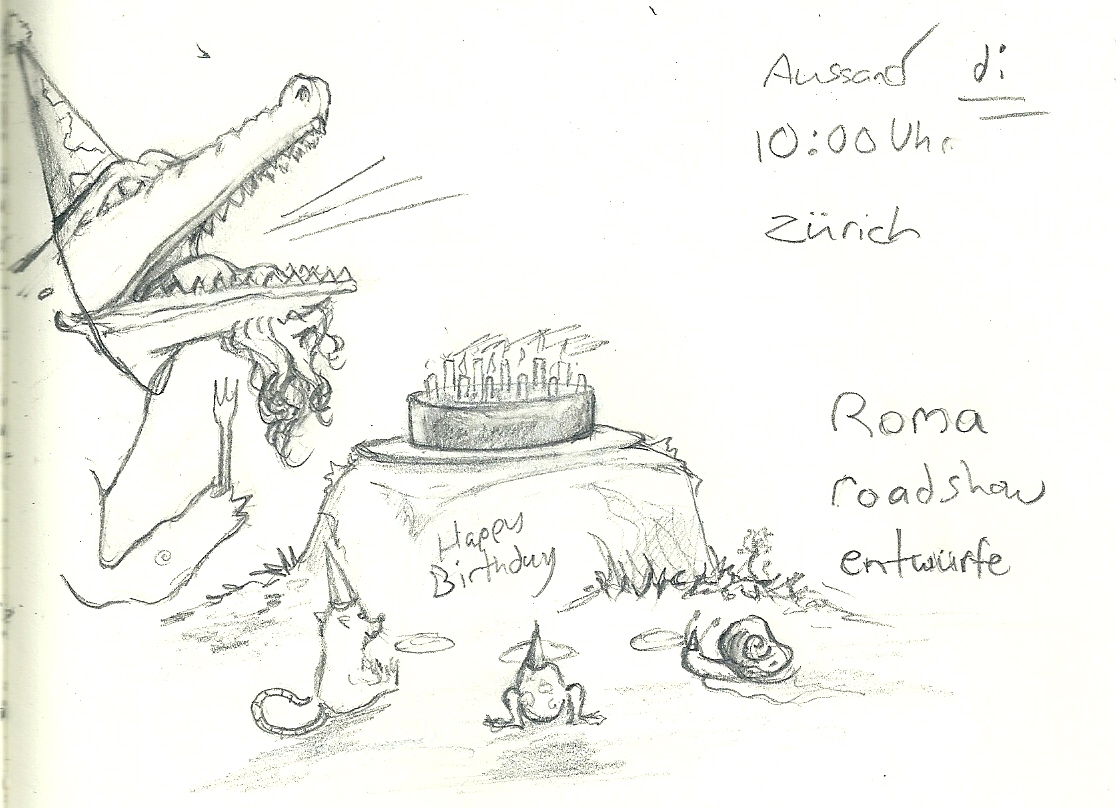 Aussand di
10:00 Uhr
Zürich
Roma
roadshow
entwürfe
Happy
Birthday